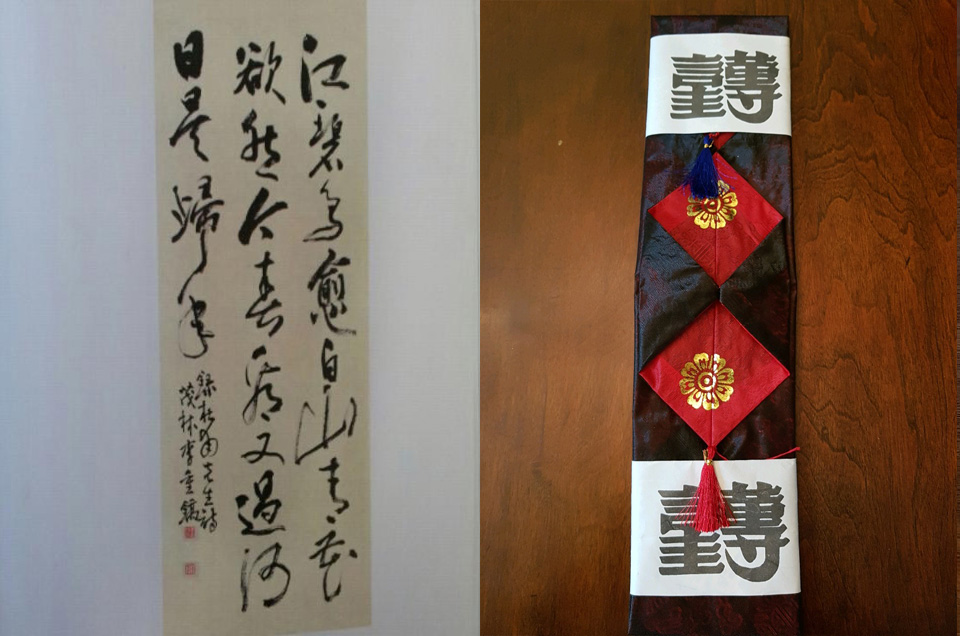 江碧鳥愈白山青花
欲然今春看又過何
日是歸年
錄杜甫先生詩
茂林李重